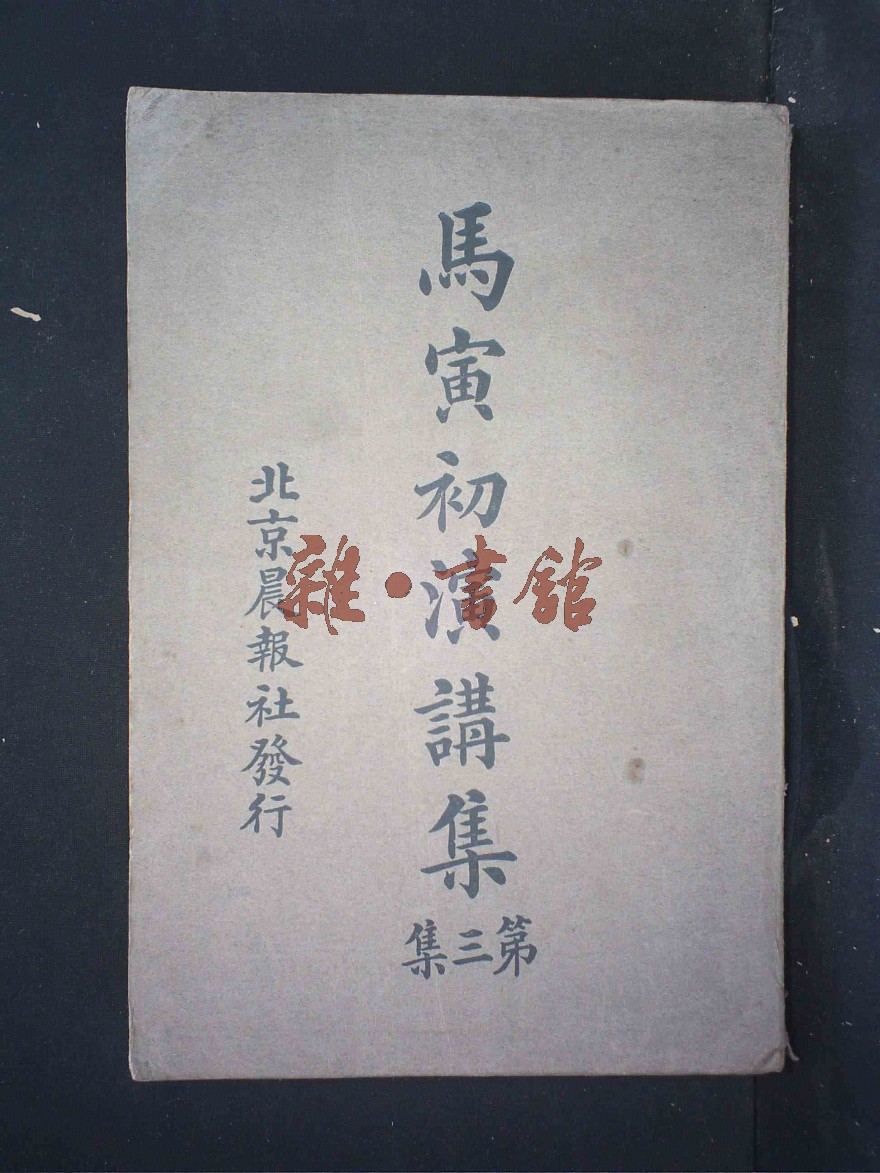 馬寅初演講集
第三集
北京晨報社發行
雜·書館